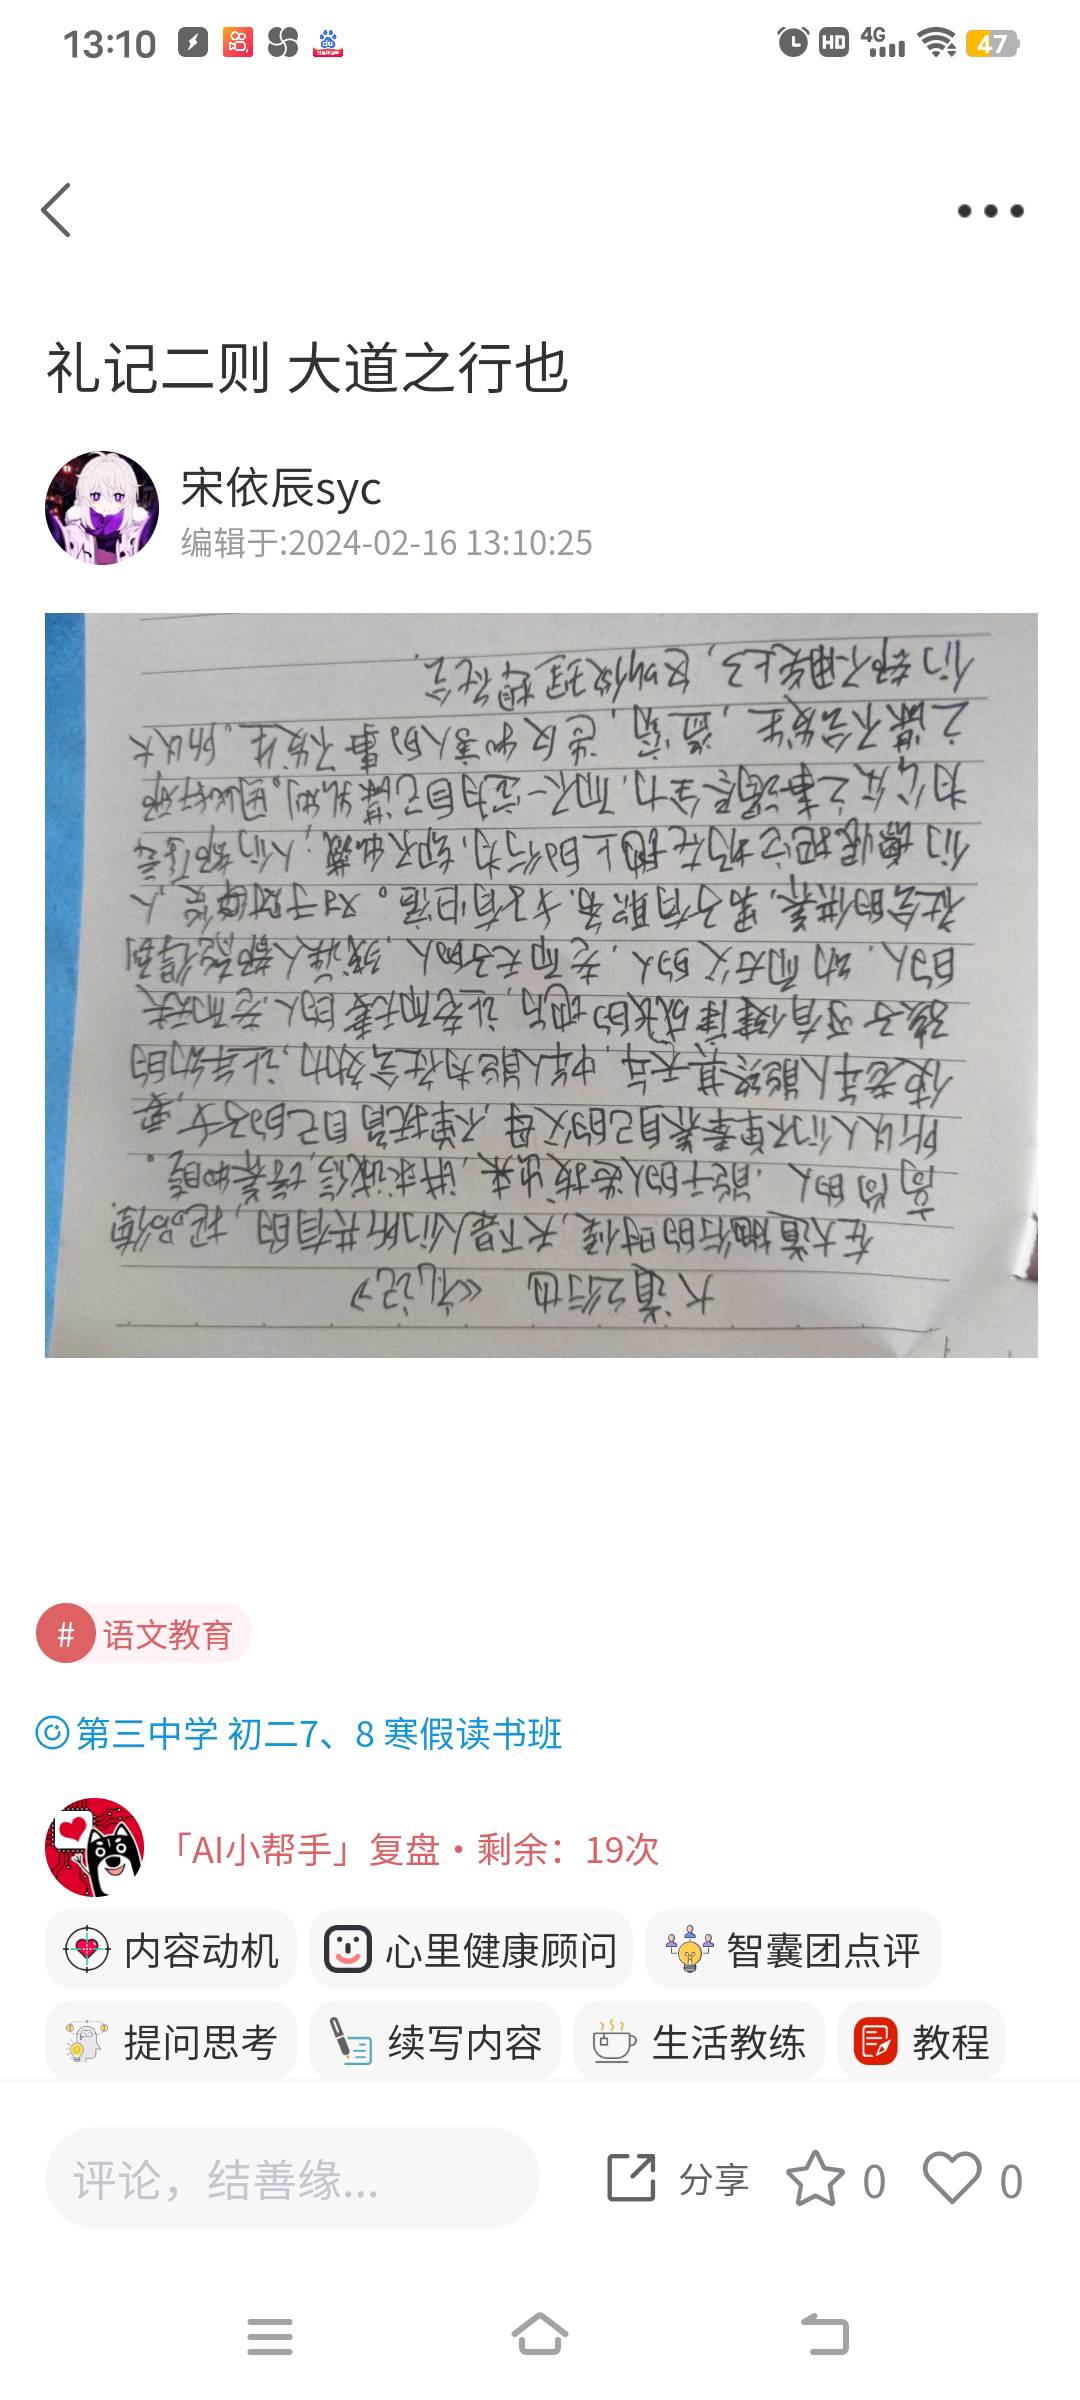 13:10
HD 4G 47
礼记二则 大道之行也
宋依辰syc
编辑于:2024-02-16 13:10:25
大道之行也 《礼记》
在大道施行的时候，天下是人们所共有的，把品德
高尚的人，能干的人选拔出来，讲求诚信，培养和睦。
所以人们不单奉养自己的父母，不单抚育自己的子女，要
使老年人能终其天年，中年人能为社会效力，让年幼的
孩子可有健康成长的地方，让老而无妻的人，老而无夫
的人，幼而无父的人，老而无子的人，残疾人都能得到
社会的供养，男子有职务，女子有归宿。对于财货，人
们憎恨把它扔在地上的行为，却不收藏；人们都愿意
为公众之事竭尽全力，而不一定为自己谋私利。因此奸邪
之谋不会发生，盗窃，造反和害人的事不发生。所以大
们都不用关上了，这叫做理想社会。
# 语文教育
第三中学 初二7、8 寒假读书班
「AI小帮手」复盘·剩余：19次
内容动机 心里健康顾问 智囊团点评
提问思考 续写内容 生活教练 教程
评论，结善缘... 分享 0 0